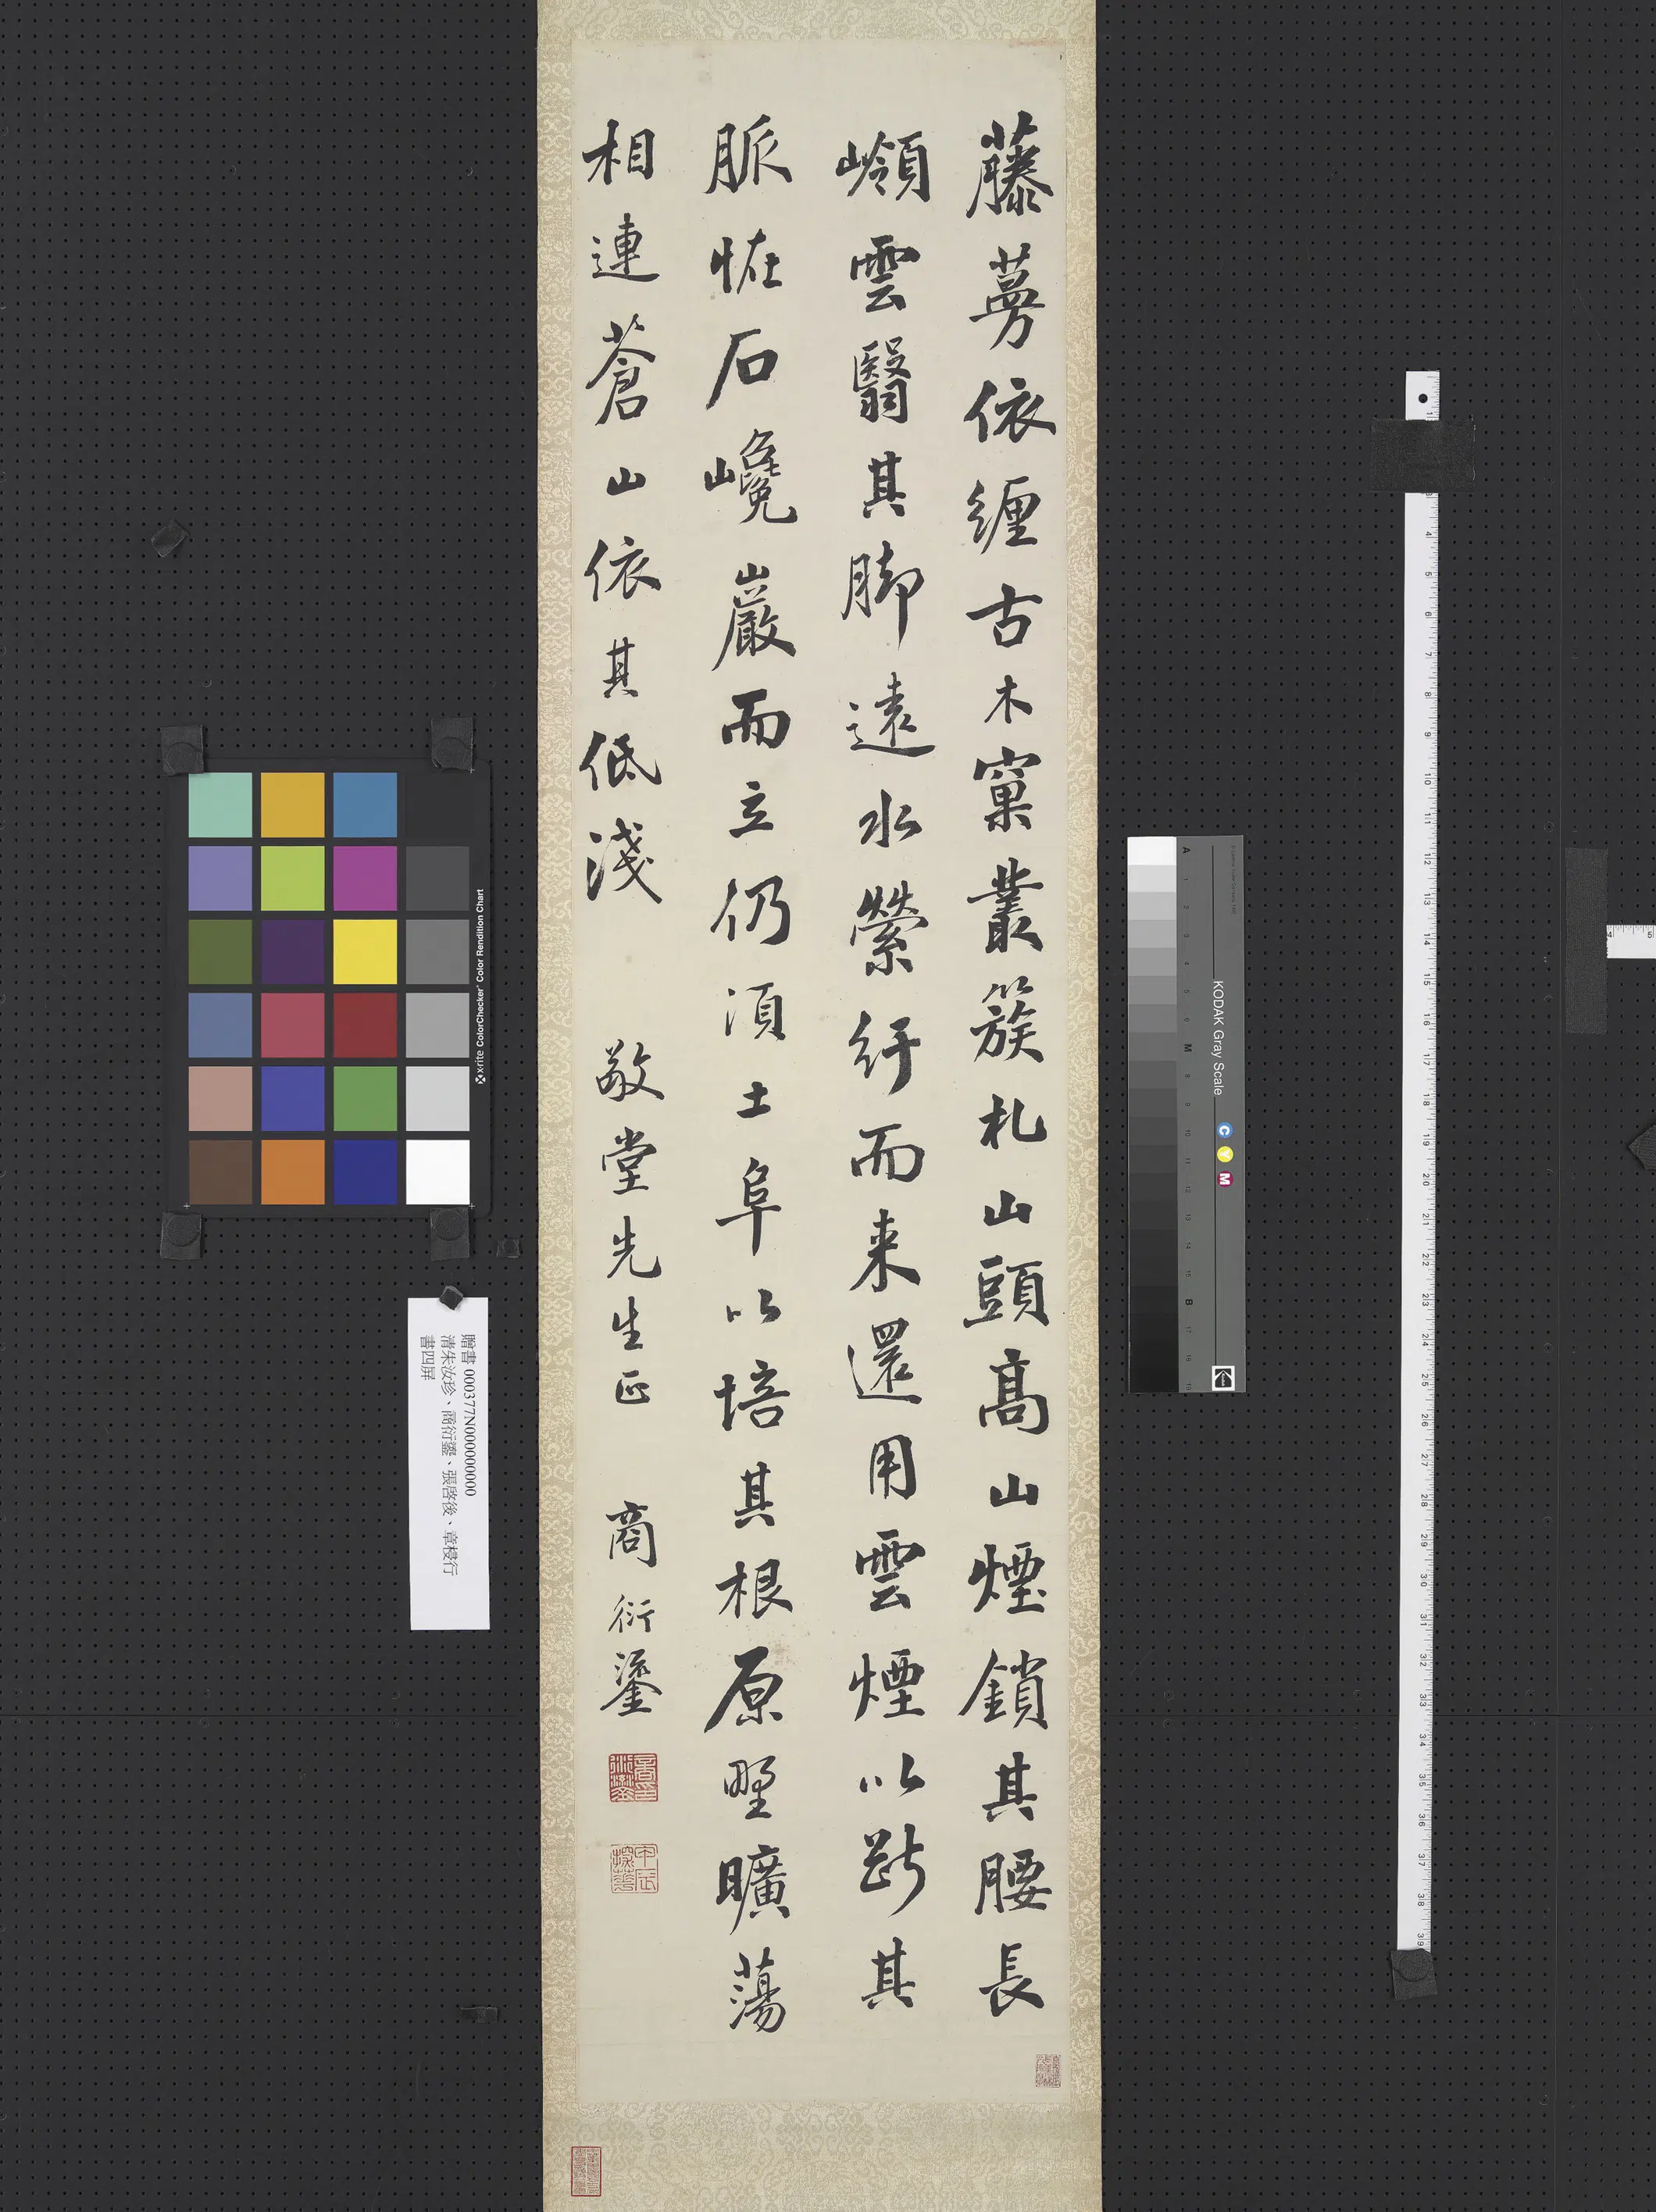 藤蔓依纏古木窠叢簇札山頭高山煙鎖其腰長
嶺雲翳其脚遠水縈紆而来還用雲煙以斷其
脈恠石巉巖而立仍須土阜以培其根原野曠蕩
相連蒼山依其低淺
敬堂先生正
商衍鎏
甲辰探花
贈書 000377N000000000
清朱汝珍、商衍鎏、張啓後、章梫行
書四屏
x-rite ColorChecker Color Rendition Chart
KODAK Gray Scale
C Y M
A 1 2 3 4 5 6 M 8 9 10 11 12 13 14 15 B 17 18 19